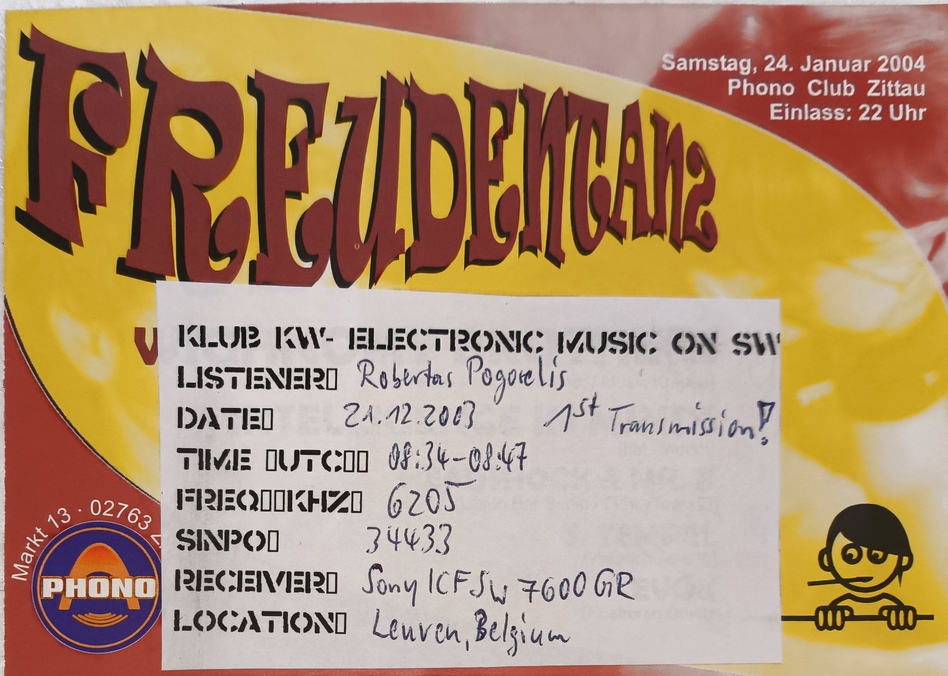 FREUDENTANZ
Samstag, 24. Januar 2004
Phono Club Zittau
Einlass: 22 Uhr
KLUB KW- ELECTRONIC MUSIC ON SW
LISTENER▯ Robertas Pogorelis
DATE▯ 21.12.2003 1st Transmission!
TIME ▯UTC▯▯ 08:34-08:47
FREQ▯▯KHZ▯ 6205
SINPO▯ 34433
RECEIVER▯ Sony ICF SW 7600 GR
LOCATION▯ Leuven, Belgium
Markt 13 · 02763 Z
PHONO